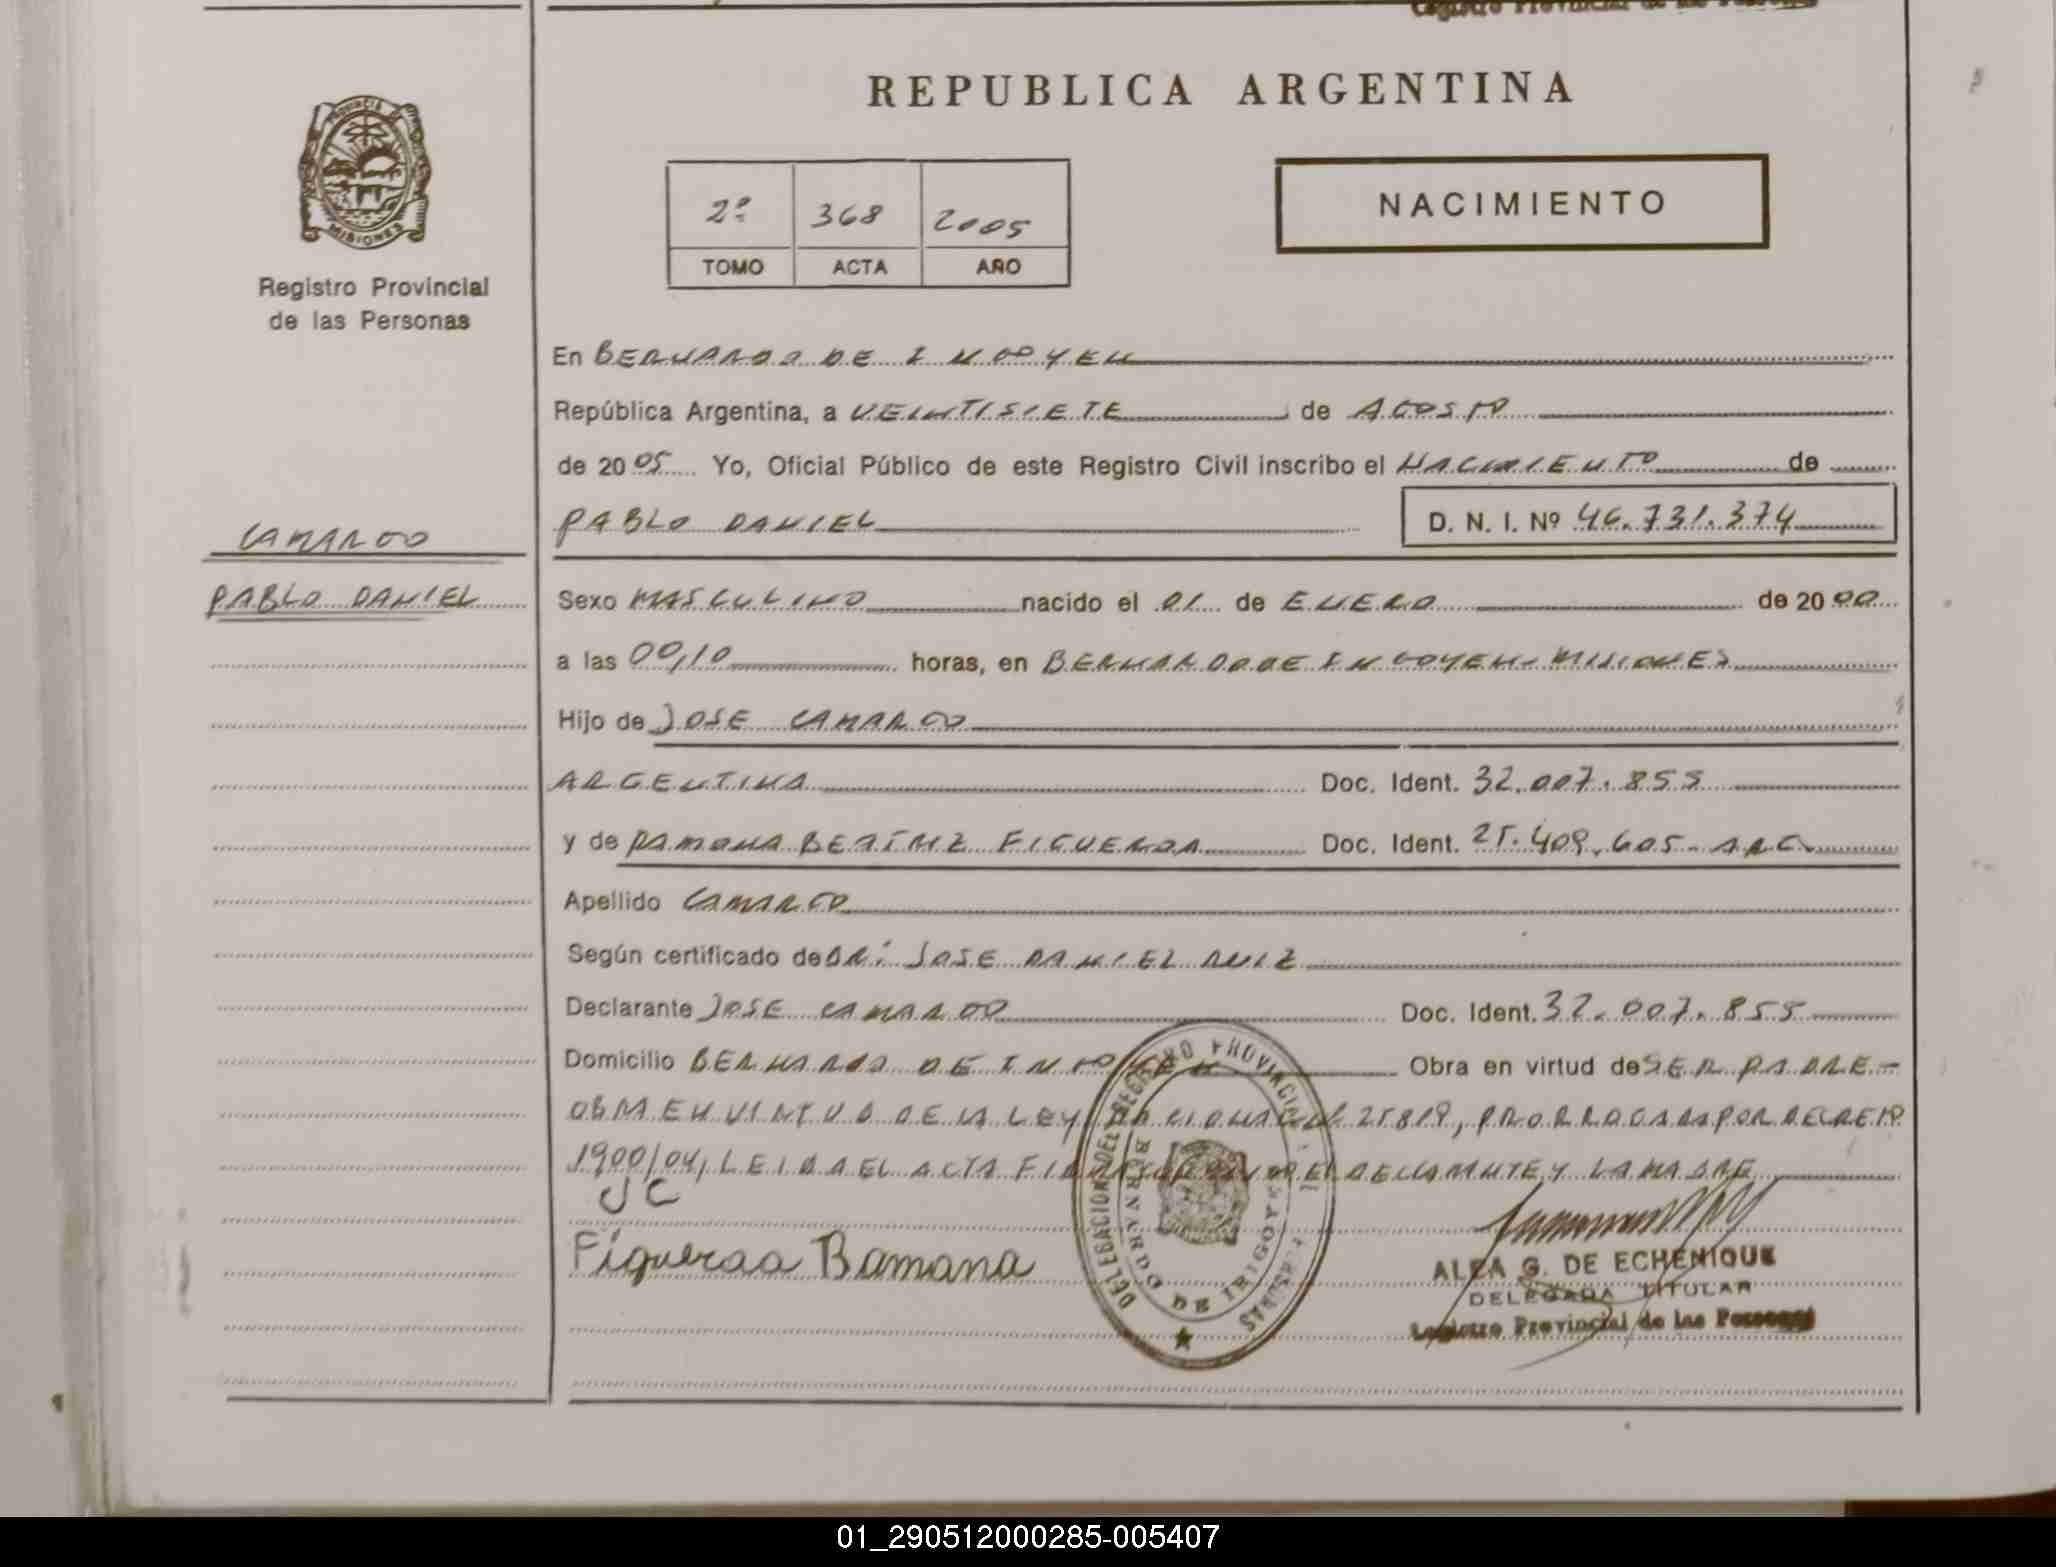 REPUBLICA ARGENTINA
PROVINCIA DE
MISIONES
Registro Provincial
de las Personas
2º 368 2005
TOMO ACTA AÑO
NACIMIENTO
En BERNARDO DE IRIGOYEN
República Argentina, a VEINTISIETE de AGOSTO
de 2005 Yo, Oficial Público de este Registro Civil inscribo el NACIMIENTO de
PABLO DANIEL D. N. I. Nº 46.731.374
CAMARGO
PABLO DANIEL
Sexo MASCULINO nacido el 01 de ENERO de 2000
a las 00,10 horas, en BERNARDO DE IRIGOYEN - MISIONES
Hijo de JOSE CAMARGO
ARGENTINA Doc. Ident. 32.007.855
y de RAMONA BEATRIZ FIGUEROA Doc. Ident. 25.409.605 - ARG.
Apellido CAMARGO
Según certificado de DR. JOSE DANIEL RUIZ
Declarante JOSE CAMARGO Doc. Ident. 32.007.855
Domicilio BERNARDO DE IRIGOYEN Obra en virtud de SER PADRE -
OBRA EN VIRTUD DE LA LEY NACIONAL Nº 25819, PRORROGADA POR DECRETO
1900/04, LEIDA EL ACTA FIRMAN EL DECLARANTE Y LA MADRE
JC
Figueroa Ramona
DELEGACION DEL REGISTRO PROVINCIAL DE LAS PERSONAS
BERNARDO DE IRIGOYEN
ALBA G. DE ECHENIQUE
DELEGADA TITULAR
Registro Provincial de las Personas
01_290512000285-005407